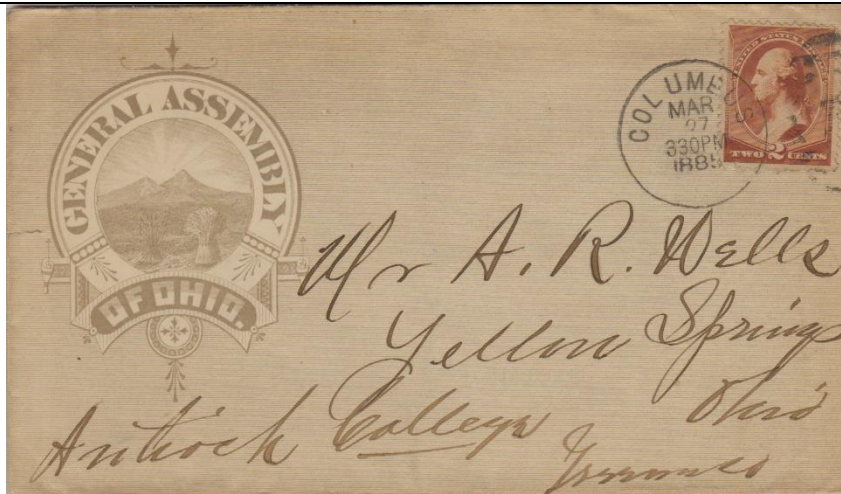 GENERAL ASSEMBLY
OF OHIO.
COLUMBUS
MAR
27
330PM
1885
UNITED STATES
TWO 2 CENTS
Mr A. R. Wells
Yellow Springs
Ohio
Antioch College